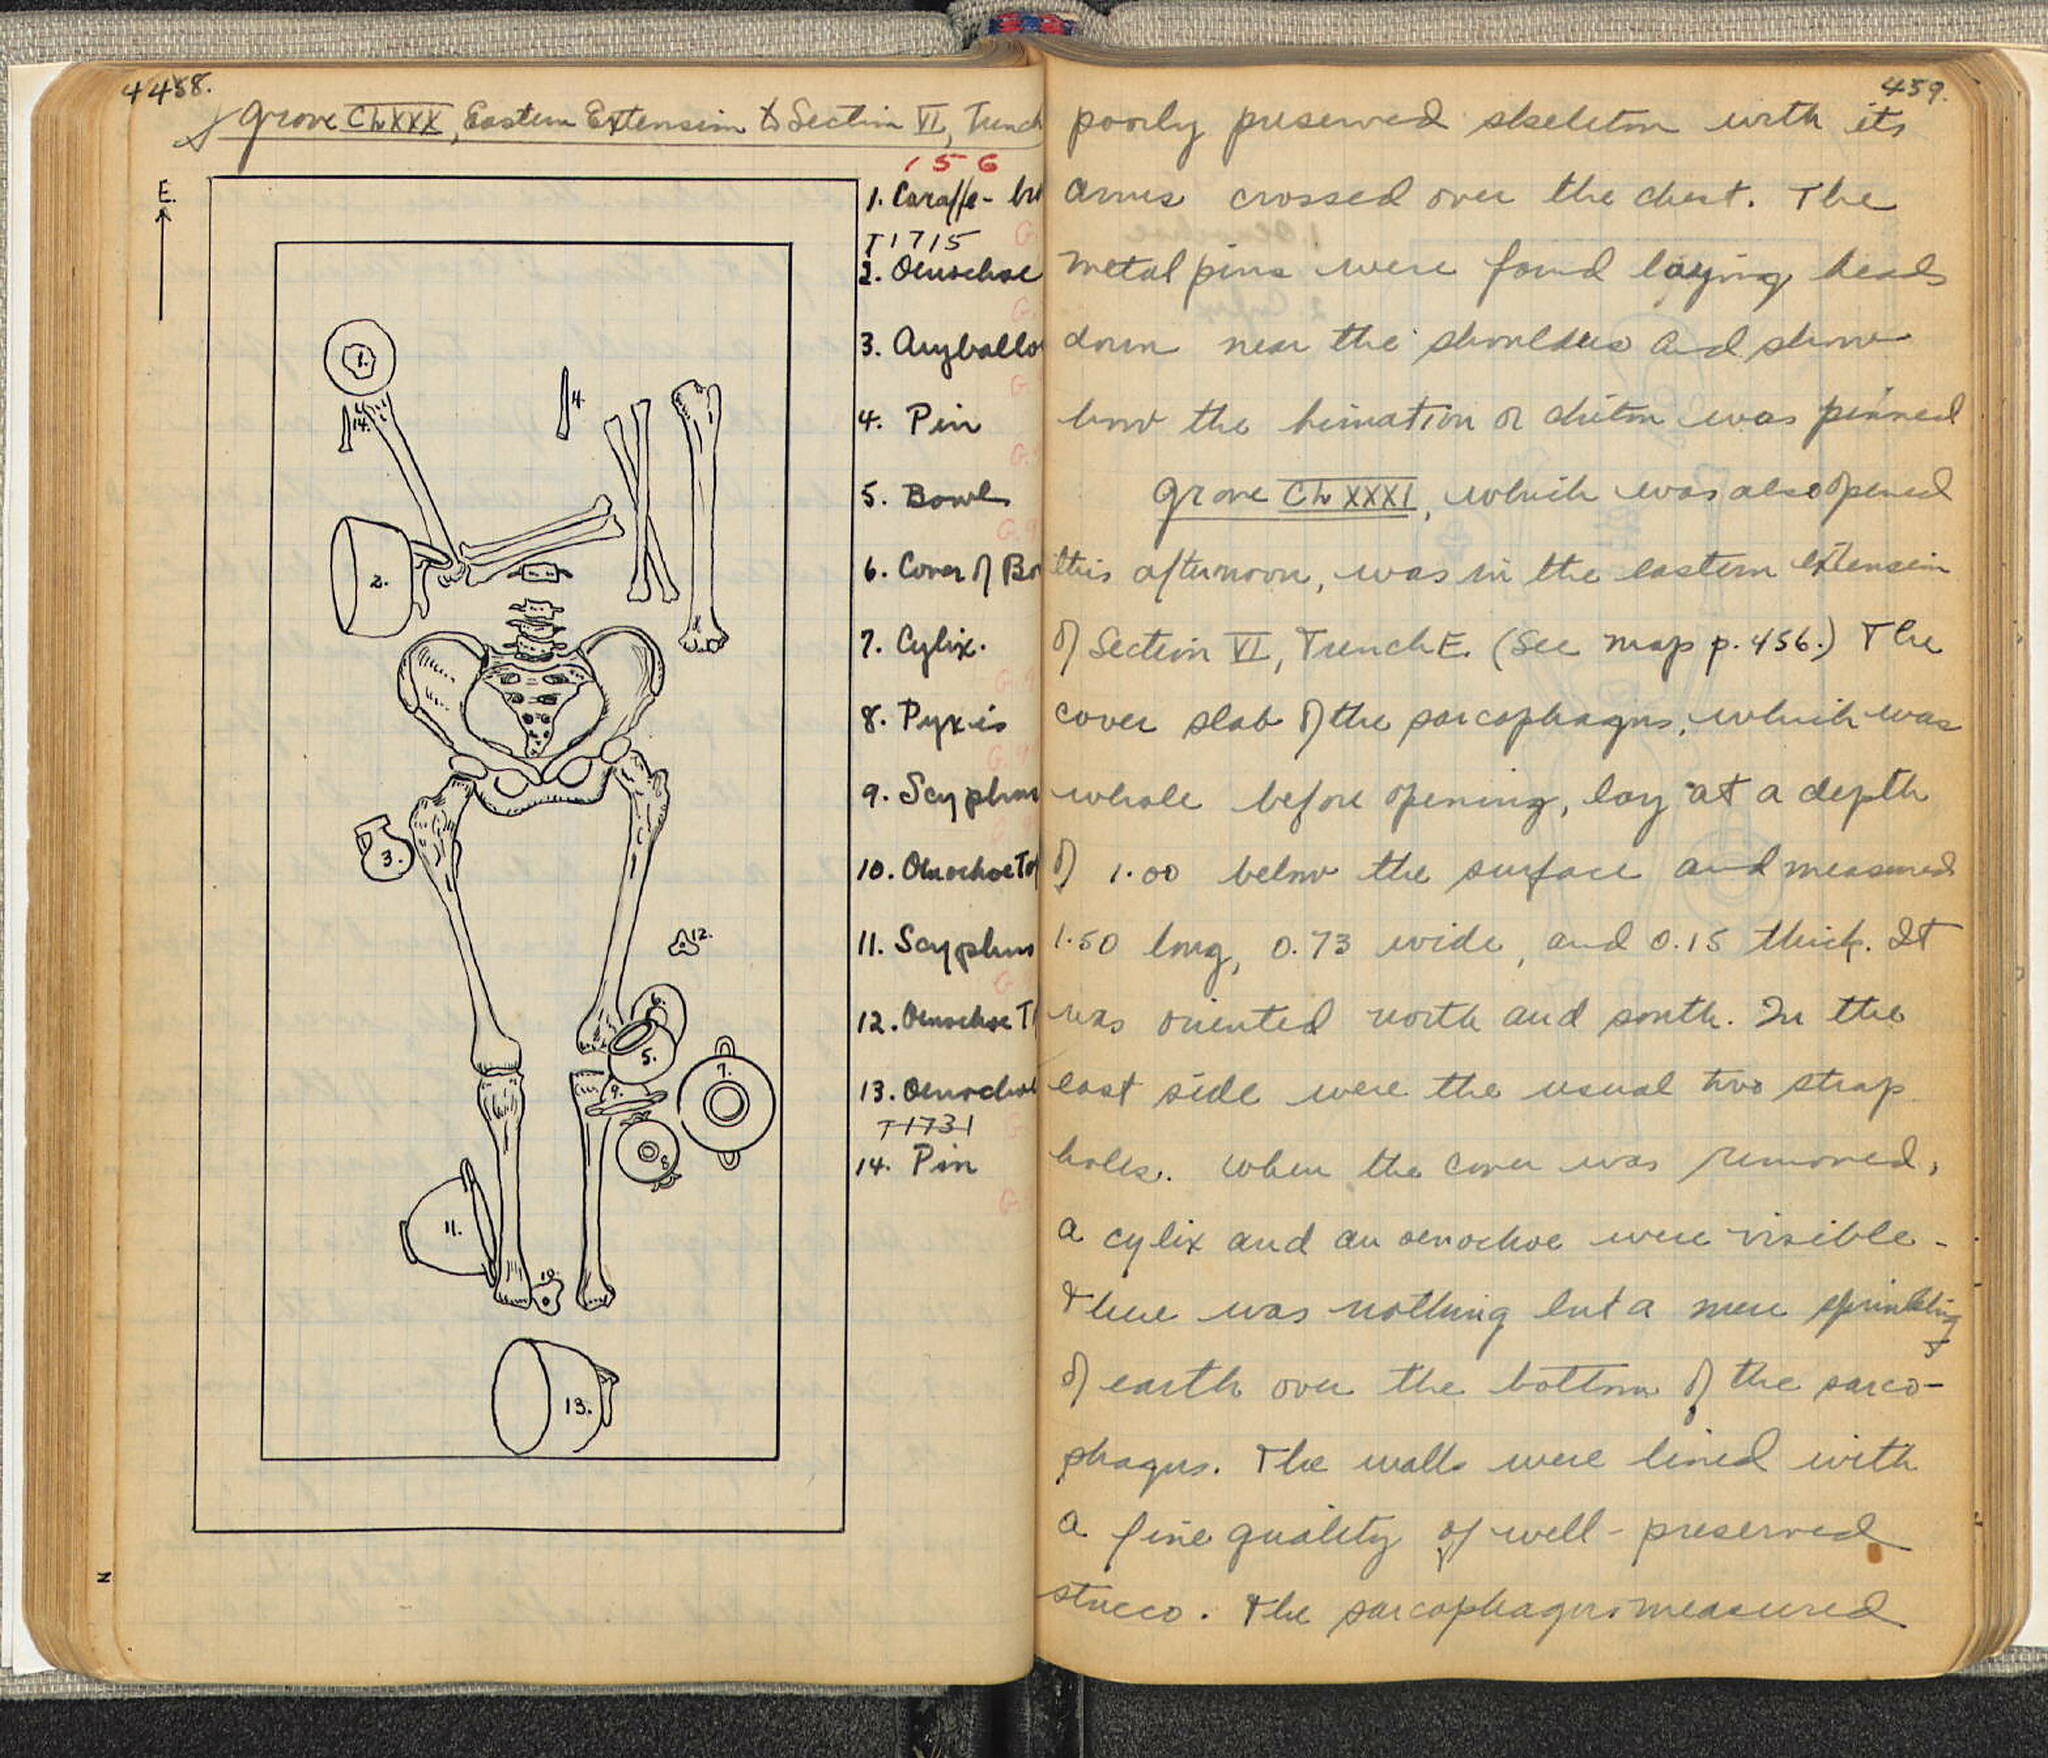 4458.
Grave CLXXX, Eastern Extension to Section VI, Trench
156
E.
1. Caraffe-
T1715
2. Oenochoe
3. Aryballo
4. Pin
5. Bowl
6. Cover of Bo
7. Cylix.
8. Pyxis
9. Scyphus
10. Oenochoe To
11. Scyphus
12. Oenochoe T
13. Oenochoe
T1731
14. Pin
1.
14.
4.
2.
3.
12.
6.
5.
7.
9.
8.
11.
10.
13.
N
459.
poorly preserved skeleton with its
arms crossed over the chest. The
metal pins were found laying heads
down near the shoulders and show
how the himation or chiton was pinned
Grave CLXXXI, which was also opened
this afternoon, was in the eastern extension
of Section VI, Trench E. (See map p. 456.) The
cover slab of the sarcophagus, which was
whole before opening, lay at a depth
of 1.00 below the surface and measured
1.50 long, 0.73 wide, and 0.15 thick. It
was oriented north and south. In the
east side were the usual two strap
holes. When the cover was removed,
a cylix and an oenochoe were visible.
There was nothing but a mere sprinkling
of earth over the bottom of the sarco-
phagus. The walls were lined with
a fine quality of well-preserved
stucco. The sarcophagus measured